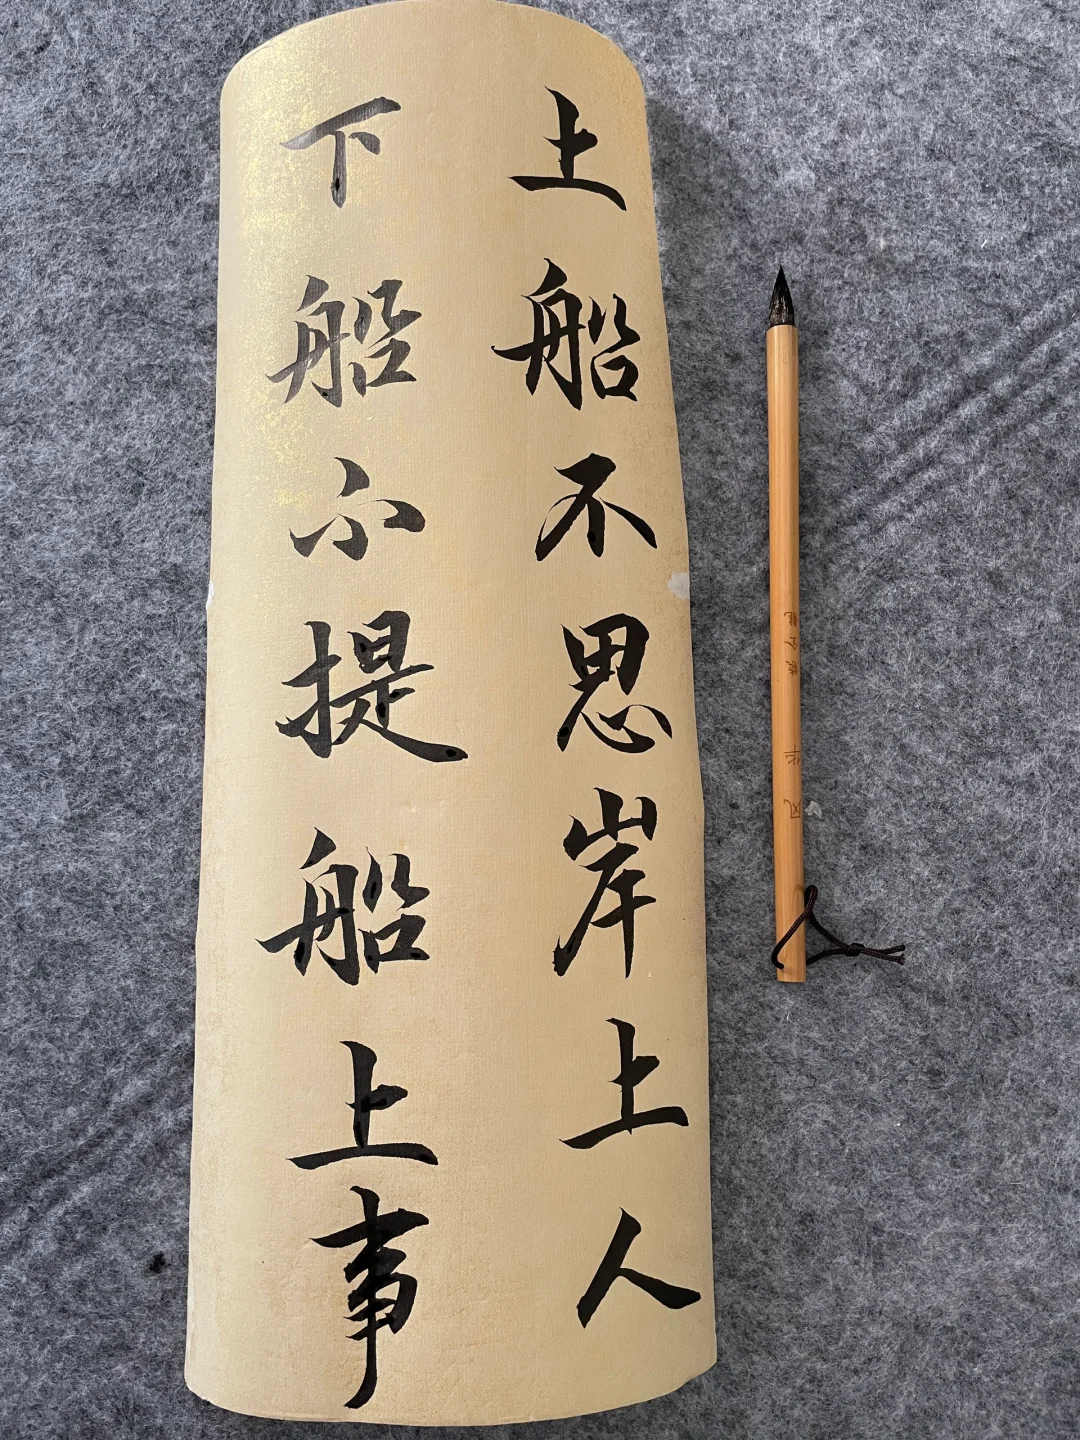 上船不思岸上人
下船不提船上事
风华